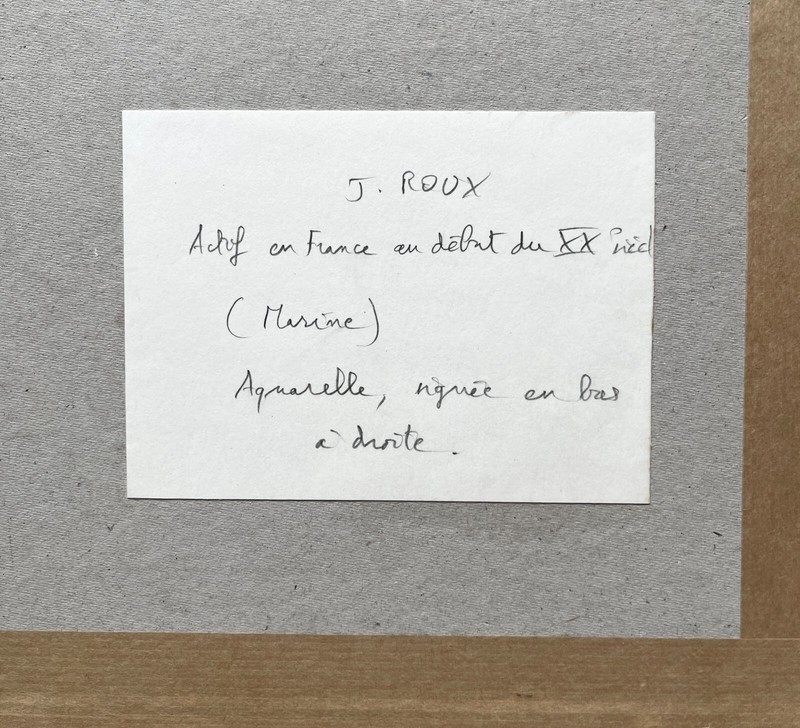 J. ROUX
Actif en France au début du XX siècl
(Marine)
Aquarelle, signée en bas
à droite.